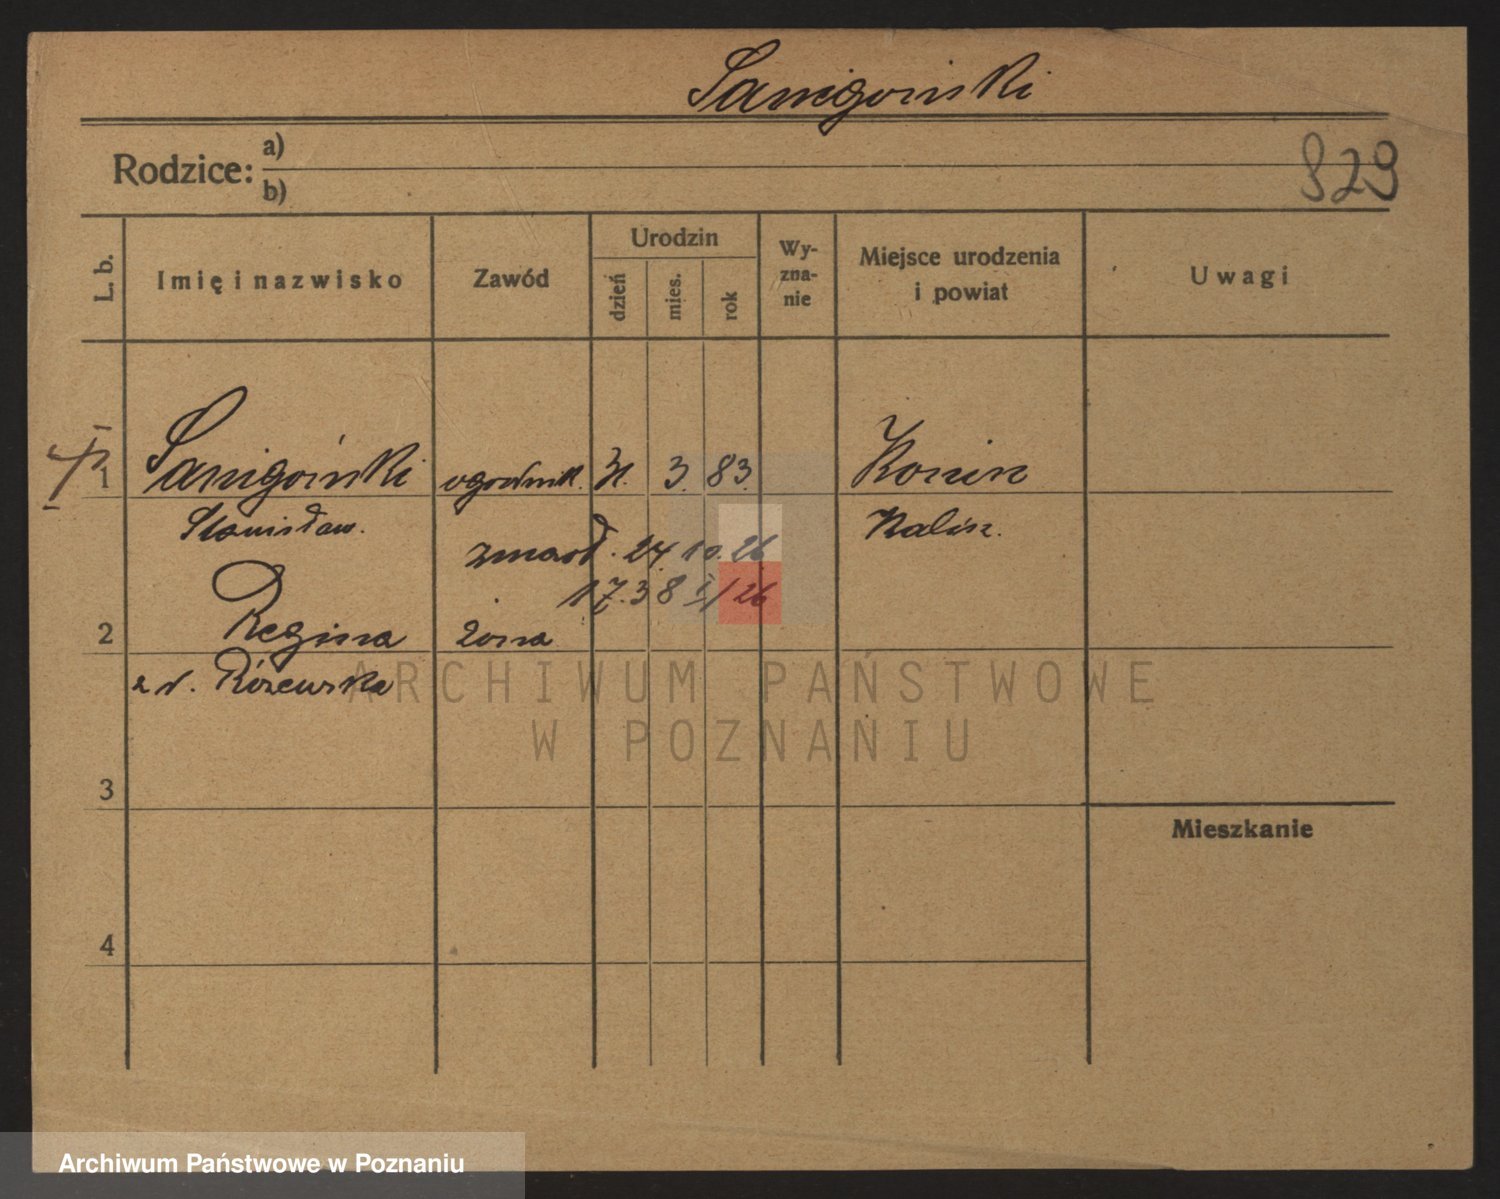 Sanigoński
829
Rodzice: a)
b)
L. b.
Imię i nazwisko
Zawód
Urodzin
dzień
mies.
rok
Wy-
zna-
nie
Miejsce urodzenia
i powiat
Uwagi
1 Sanigoński ogrodnik. 31. 3. 83. Konin
Stanisław. Kalisz.
zmarł. 24. 10. 26
17.38 /26
2 Regina żona
z d. Różewska
3
Mieszkanie
4
ARCHIWUM PAŃSTWOWE
W POZNANIU
Archiwum Państwowe w Poznaniu